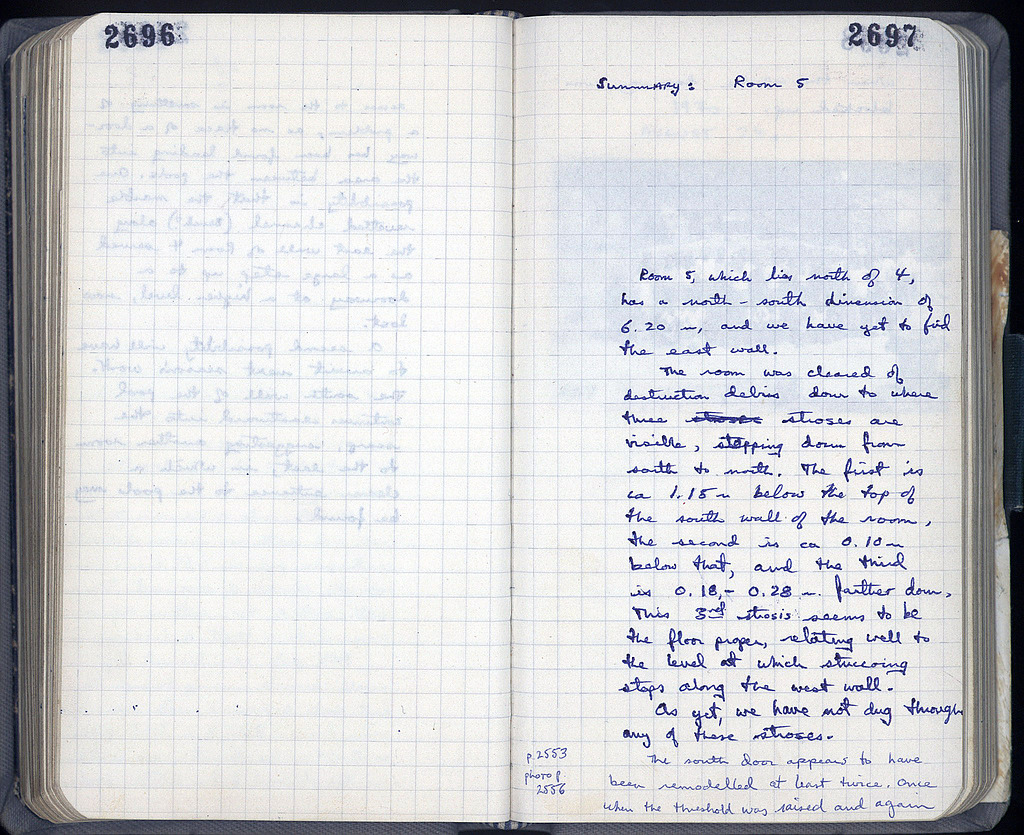 2696
2697
Summary: Room 5
Room 5, which lies north of 4,
has a north-south dimension of
6.20 m, and we have yet to find
the east wall.
The room was cleared of
destruction debris down to where
three stroses stroses are
visible, stepping down from
south to north. The first is
ca 1.15 m below the top of
the south wall of the room,
the second is ca 0.10 m
below that, and the third
is 0.18,- 0.28 m. farther down.
This 3rd strosis seems to be
the floor proper, relating well to
the level at which stuccoing
stops along the west wall.
As yet, we have not dug through
any of these stroses.
p. 2553
photo p.
2556
The south door appears to have
been remodelled at least twice, once
when the threshold was raised and again